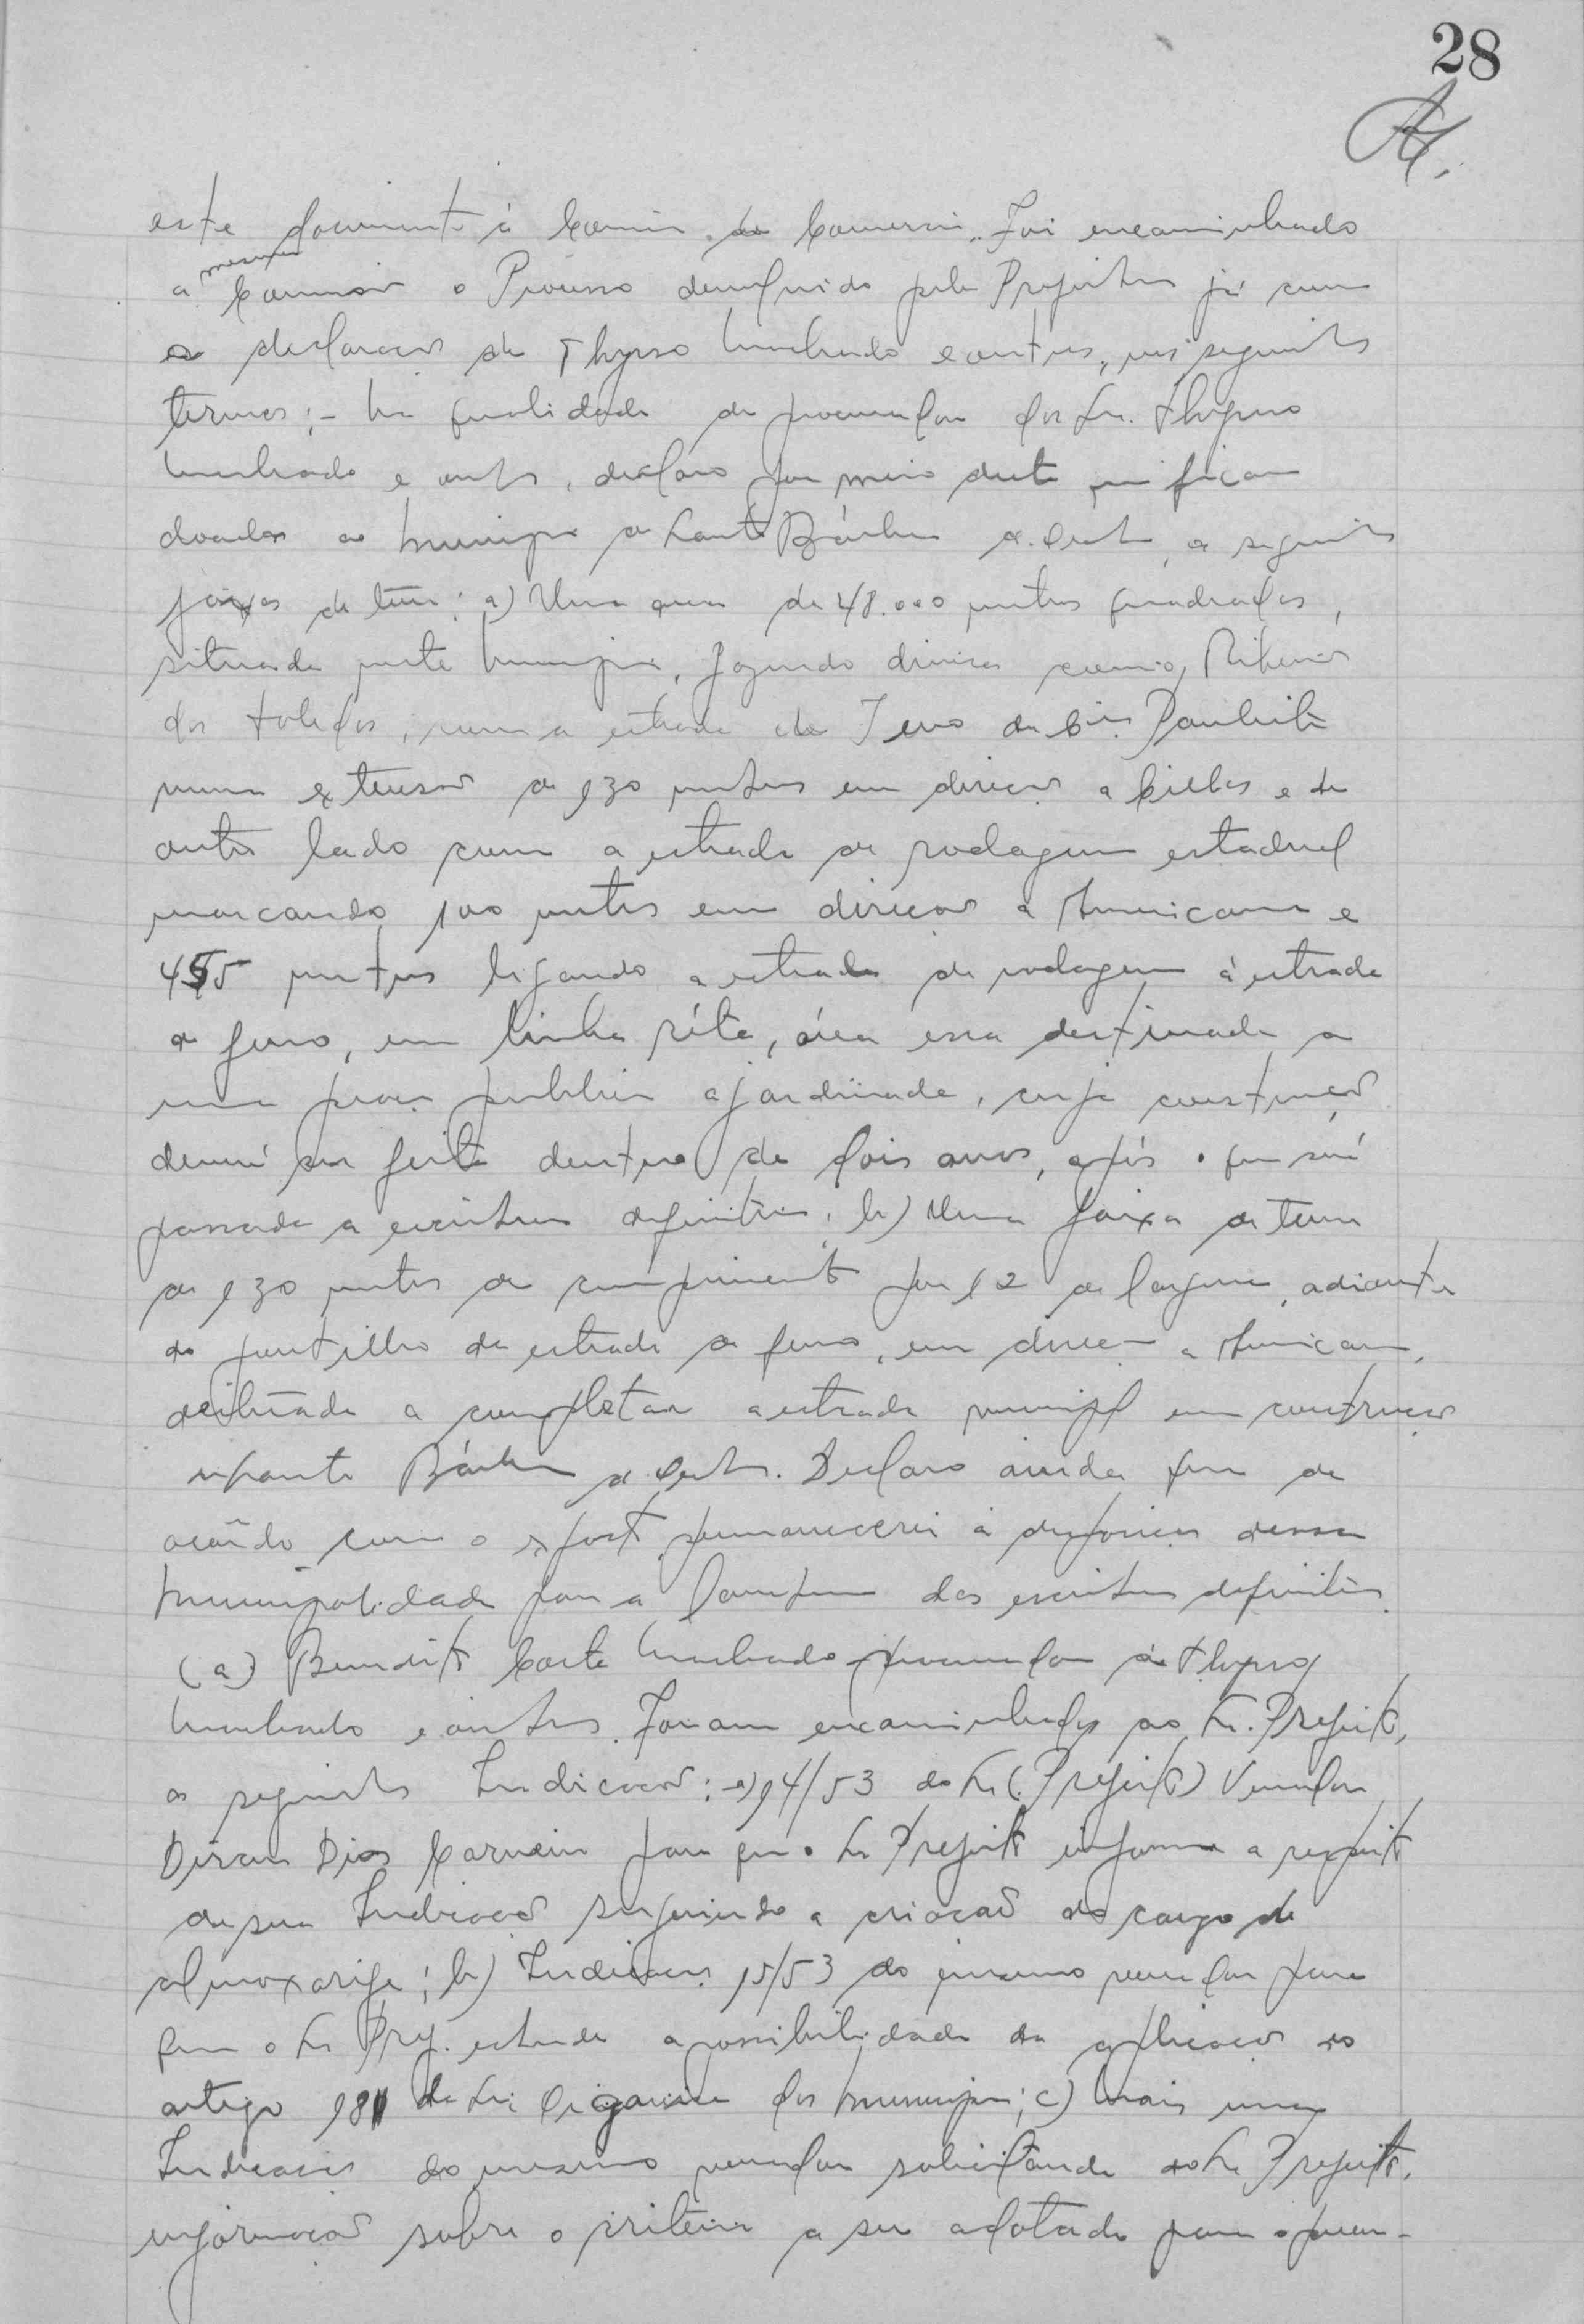 28
este documento à Comissão de Comercio. Foi encaminhado
a mesma Comissão o Processo devolvido pela Prefeitura já com
a declaração de Thyrso Machado e outros, nos seguintes
termos:- Na qualidade de procurador dos Srs. Thyrso
Machado e outros, declaro por meio deste que ficam
doadas ao Municipio de Santa Bárbara d'Oeste, as seguintes
faixas de terra: a) Uma area de 48.000 metros quadrados,
situada neste Municipio, fazendo divisa com o Ribeirão
dos Toledos, com a estrada de Ferro da Cia. Paulista
numa extensão de 930 metros em direção a Cillos e de
outro lado com a estrada de rodagem estadual
marcando 100 metros em direção a Americana e
455 metros ligando a estrada de rodagem à estrada
de ferro, em linha réta, área essa destinada a
uma praça publica ajardinada, cuja construção
deverá ser feita dentro de dois anos, após o que será
passada a escritura definitiva. b) Uma faixa de terra
de 930 metros de comprimento por 12 de largura, adiante
do pontilhão da estrada de ferro, em direção a Americana,
destinada a completar a estrada municipal em construção
Santa Bárbara d'Oeste. Declaro ainda que de
acôrdo com o exposto, permanecerei à disposição dessa
Municipalidade para a lavratura das escrituras definitivas.
(a) Benedito Costa Machado - procurador de Thyrso
Machado e outros. Foram encaminhadas ao Sr. Prefeito,
as seguintes Indicações: - a) 14/53 do Sr. (Prefeito) Vereador
Dirceu Dias Carneiro para que o Sr. Prefeito informe a respeito
de sua Indicação sugerindo a criação do cargo de
almoxarife; b) Indicação 15/53 do mesmo vereador para
que o Sr. Pref. estude a possibilidade da aplicação do
artigo 181 da Lei Orgânica dos Municipios; c) Mais uma
Indicação do mesmo vereador solicitando do Sr. Prefeito,
informação sobre o critério a ser adotado para o preen-